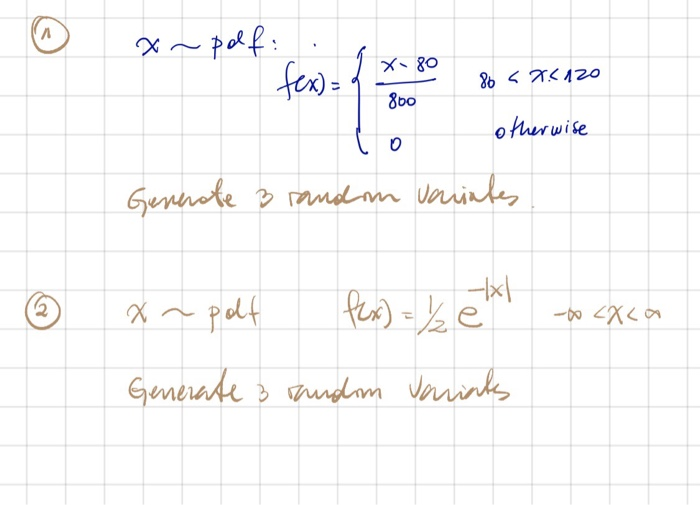 ① x ~ pdf:
f(x) = { x - 80 / 800    80 < x < 120
0    otherwise
Generate 3 random variates.
② x ~ pdf    f(x) = 1/2 e^{-|x|}    -∞ < x < ∞
Generate 3 random variates